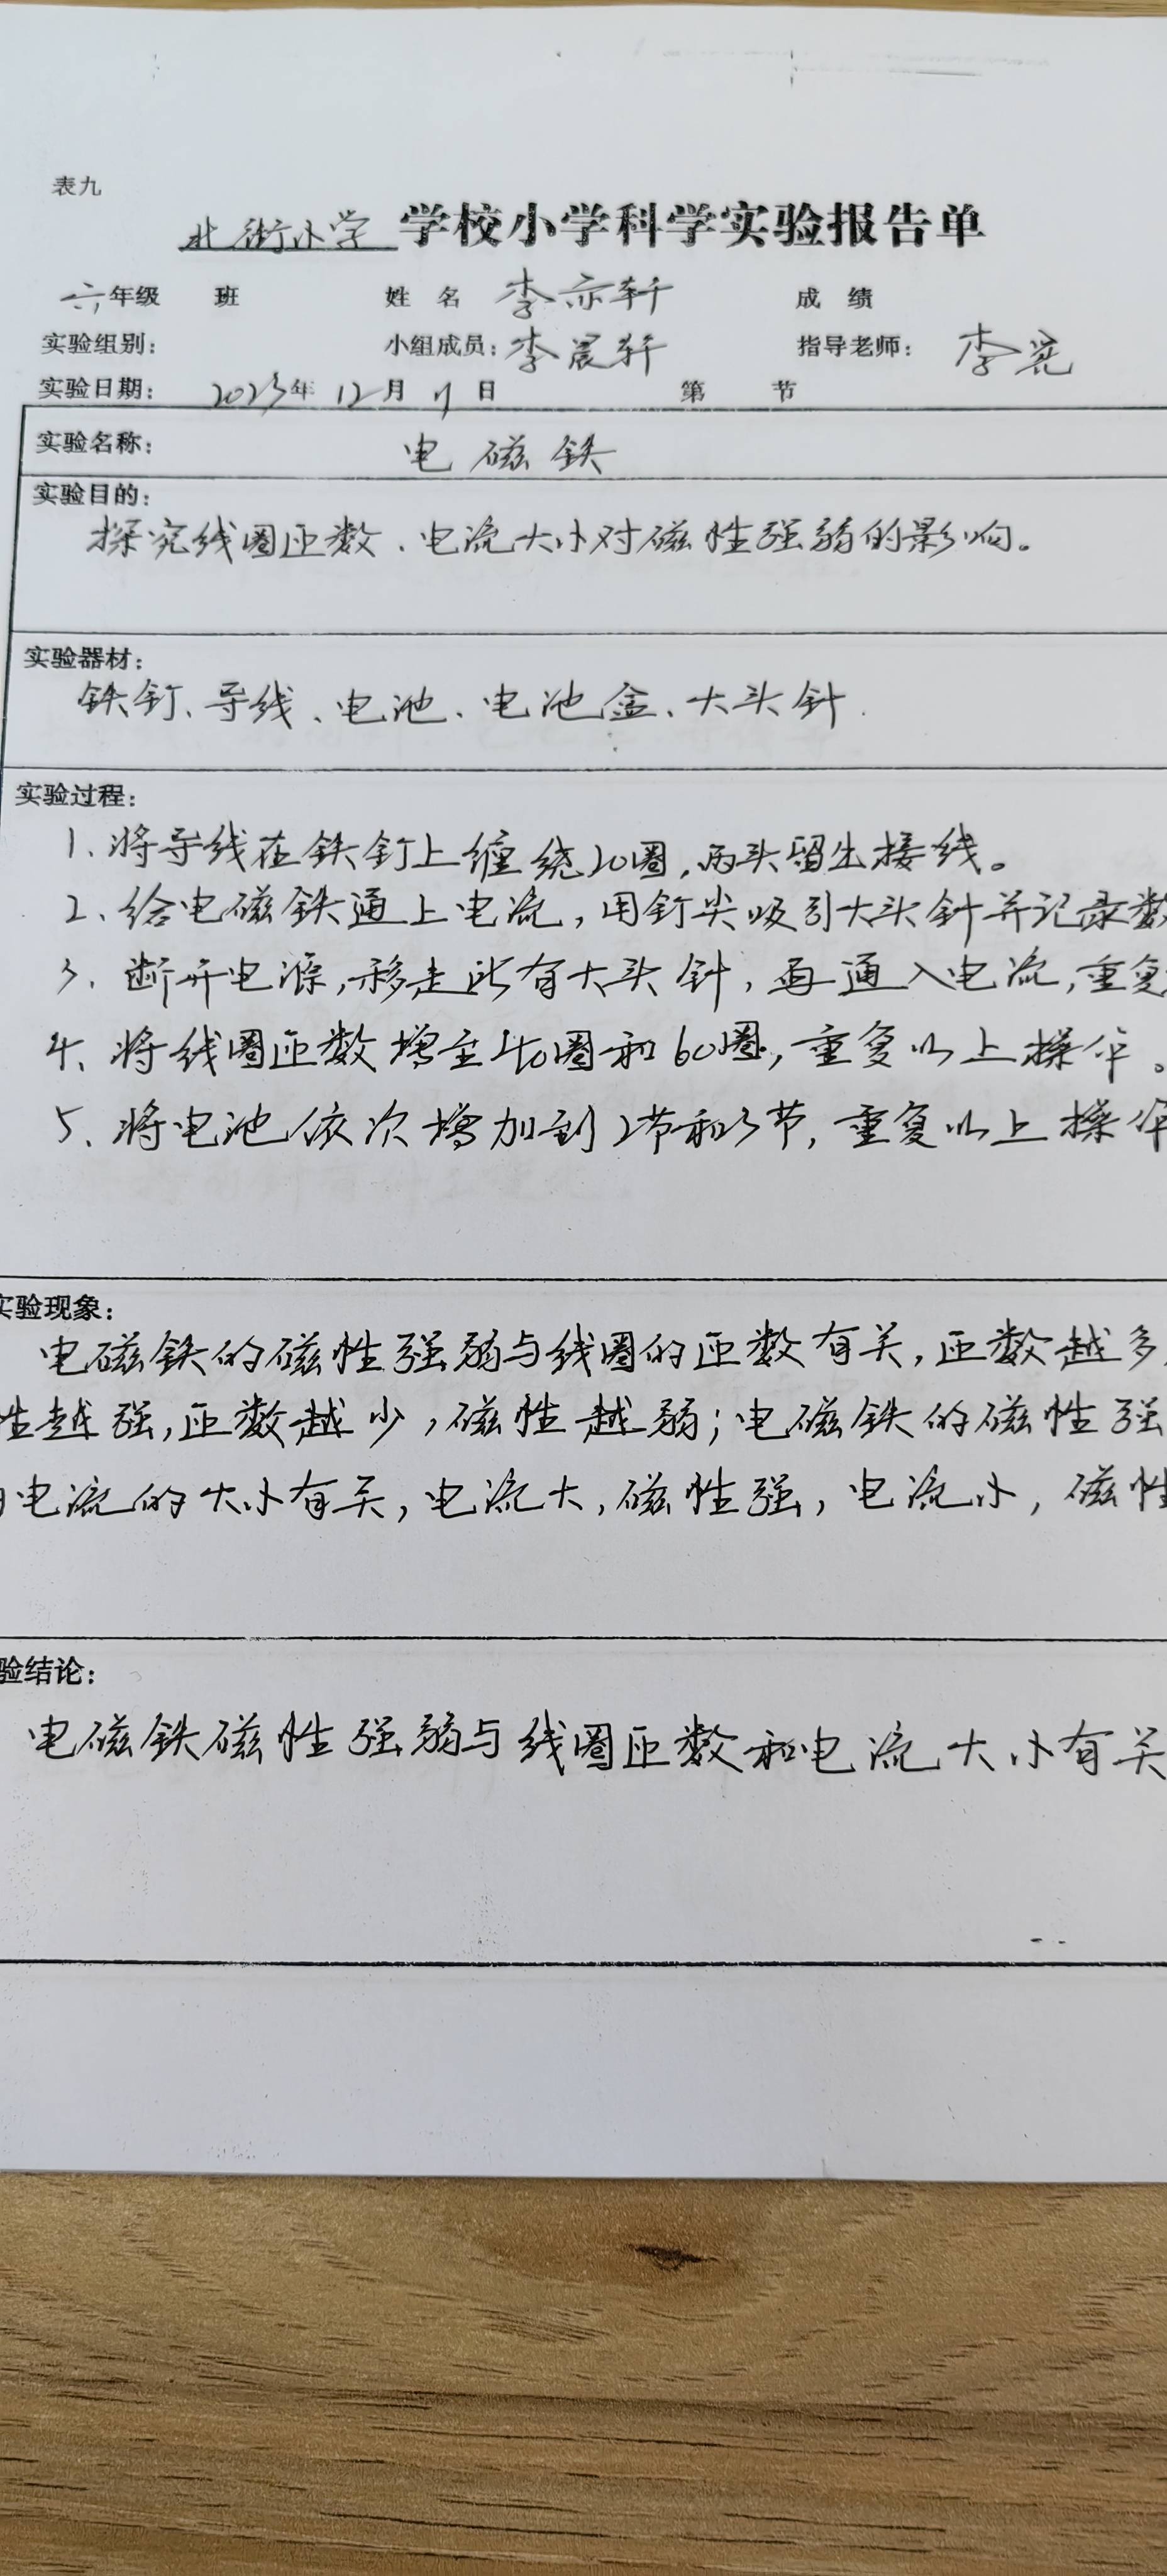 表九
北街小学 学校小学科学实验报告单
六年级 班 姓名 李亦轩 成绩
实验组别： 小组成员：李晨轩 指导老师： 李
实验日期： 2023年 12月 日 第 节
实验名称： 电磁铁
实验目的：
探究线圈匝数、电流大小对磁性强弱的影响。
实验器材：
铁钉、导线、电池、电池盒、大头针
实验过程：
1、将导线在铁钉上缠绕20圈，两头留出接线。
2、给电磁铁通上电流，用钉尖吸引大头针并记录数
3、断开电源，移走所有大头针，再通入电流，重复
4、将线圈匝数增至40圈和60圈，重复以上操作。
5、将电池依次增加到2节和3节，重复以上操作
实验现象：
电磁铁的磁性强弱与线圈的匝数有关，匝数越多，
性越强，匝数越少，磁性越弱；电磁铁的磁性强
电流的大小有关，电流大，磁性强，电流小，磁性
验结论：
电磁铁磁性强弱与线圈匝数和电流大小有关